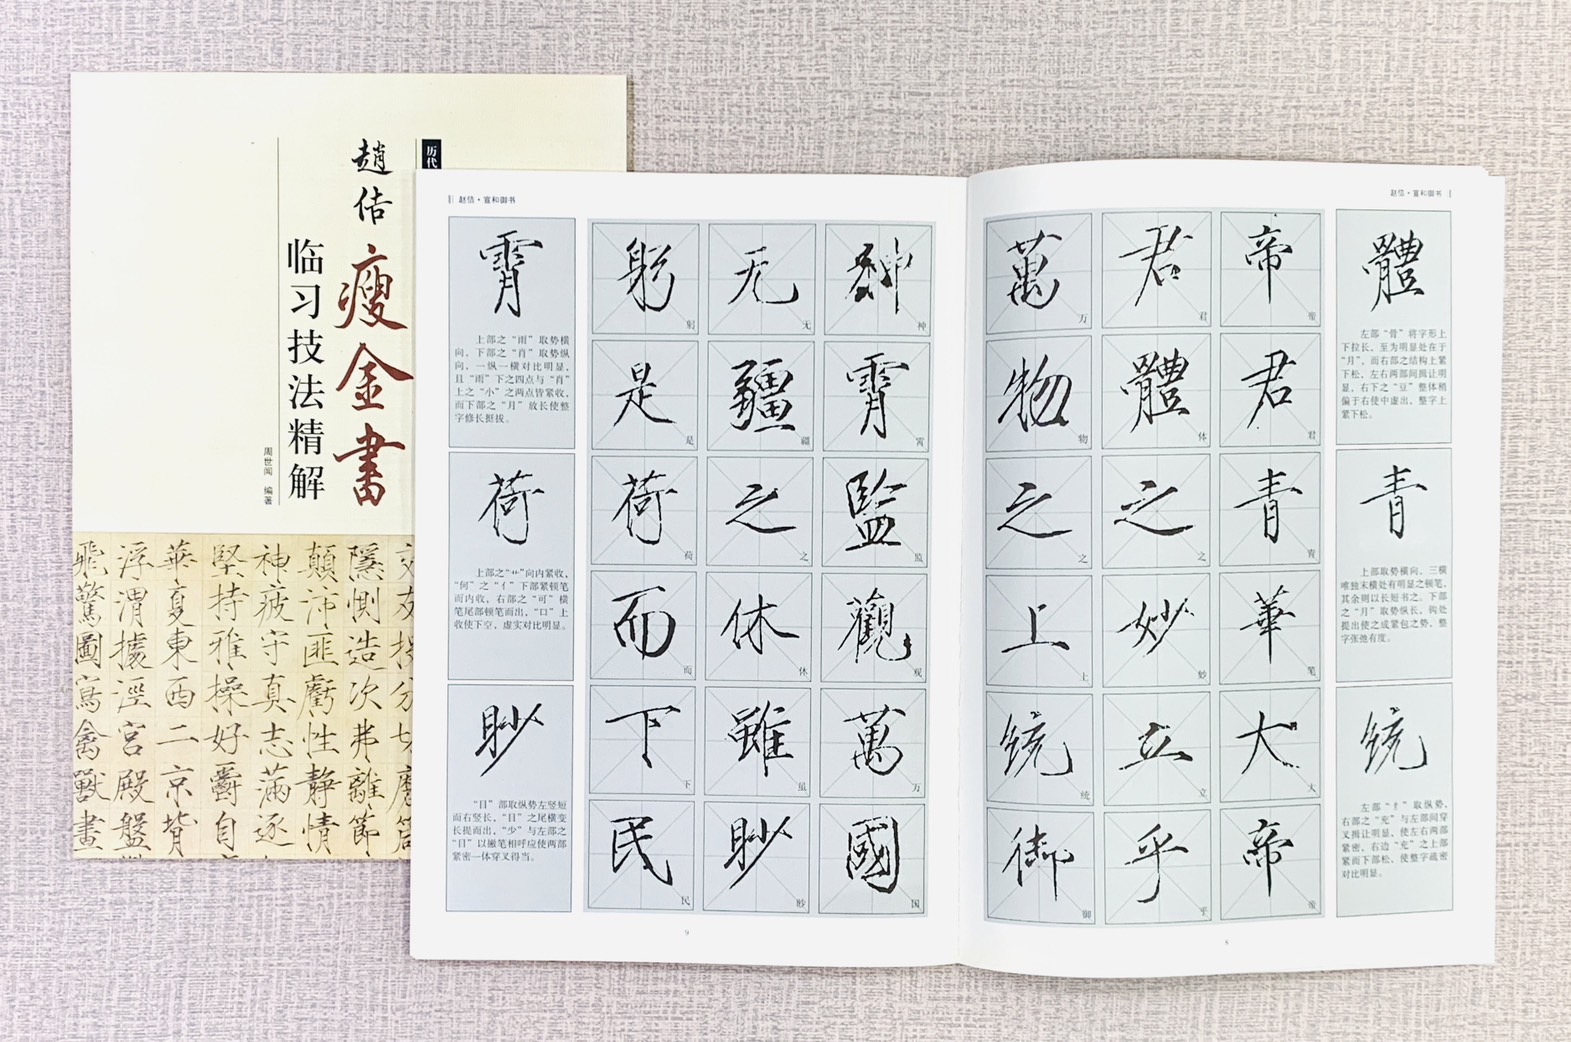 历代
趙佶
瘦金書
临习技法精解
周世闻 编著
隱惻造次弗離節
顛沛匪虧性静情
神疲守真志滿逐
堅持雅操好爵自
華夏東西二京背
浮渭據涇宮殿盤
飛驚圖寫禽獸畫
赵佶·宣和御书
體
左部“骨”将字形上
下拉长，至为明显处在于
“月”，而右部之结构上紧
下松，左右两部间揖让明
显，右下之“豆”整体稍
偏于右使中虚出，整字上
紧下松。
青
上部取势横向，三横
唯独末横处有明显之顿笔，
其余则以长短书之。下部
之“月”取势纵长，钩处
提出使之成紧包之势，整
字张弛有度。
统
左部“纟”取纵势，
右部之“充”与左部间穿
叉揖让明显，使左右两部
紧密，右边“充”之上部
紧而下部松，使整字疏密
对比明显。
帝
君
君
青
青
華
笔
大
大
帝
君
君
體
体
之
之
妙
妙
立
立
乎
乎
萬
万
物
物
之
之
上
上
统
统
御
御
8
赵佶·宣和御书
神
神
霄
霄
監
监
觀
观
萬
万
國
国
无
无
疆
疆
之
之
休
休
雖
虽
眇
眇
躬
躬
是
是
荷
荷
而
而
下
下
民
民
霄
上部之“雨”取势横
向，下部之“肖”取势纵
向，一纵一横对比明显，
且“雨”下之四点与“肖”
上之“小”之两点皆紧收，
而下部之“月”放长使整
字修长挺拔。
荷
上部之“艹”向内紧收，
“何”之“亻”下部紧顿笔
而内收，右部之“可”横
笔尾部顿笔而出，“口”上
收使下空，虚实对比明显。
眇
“目”部取纵势左竖短
而右竖长，“目”之尾横变
长提而出，“少”与左部之
“目”以撇笔相呼应使两部
紧密一体穿叉得当。
9